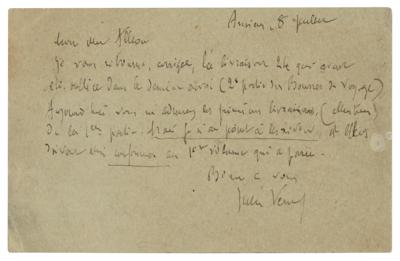 Amiens, 8 juillet
Mon cher
Je vous retourne, corrigée, la livraison 24 qui avait
été oubliée dans le dernier envoi (2e partie des Bourses de voyage)
Aujourd'hui vous m'adressez les premières livraisons,
de la 1ère partie. Mais je n'ai point à les revoir, et elles
doivent être conformes au 1er volume qui a paru.
Bien à vous
Jules Verne